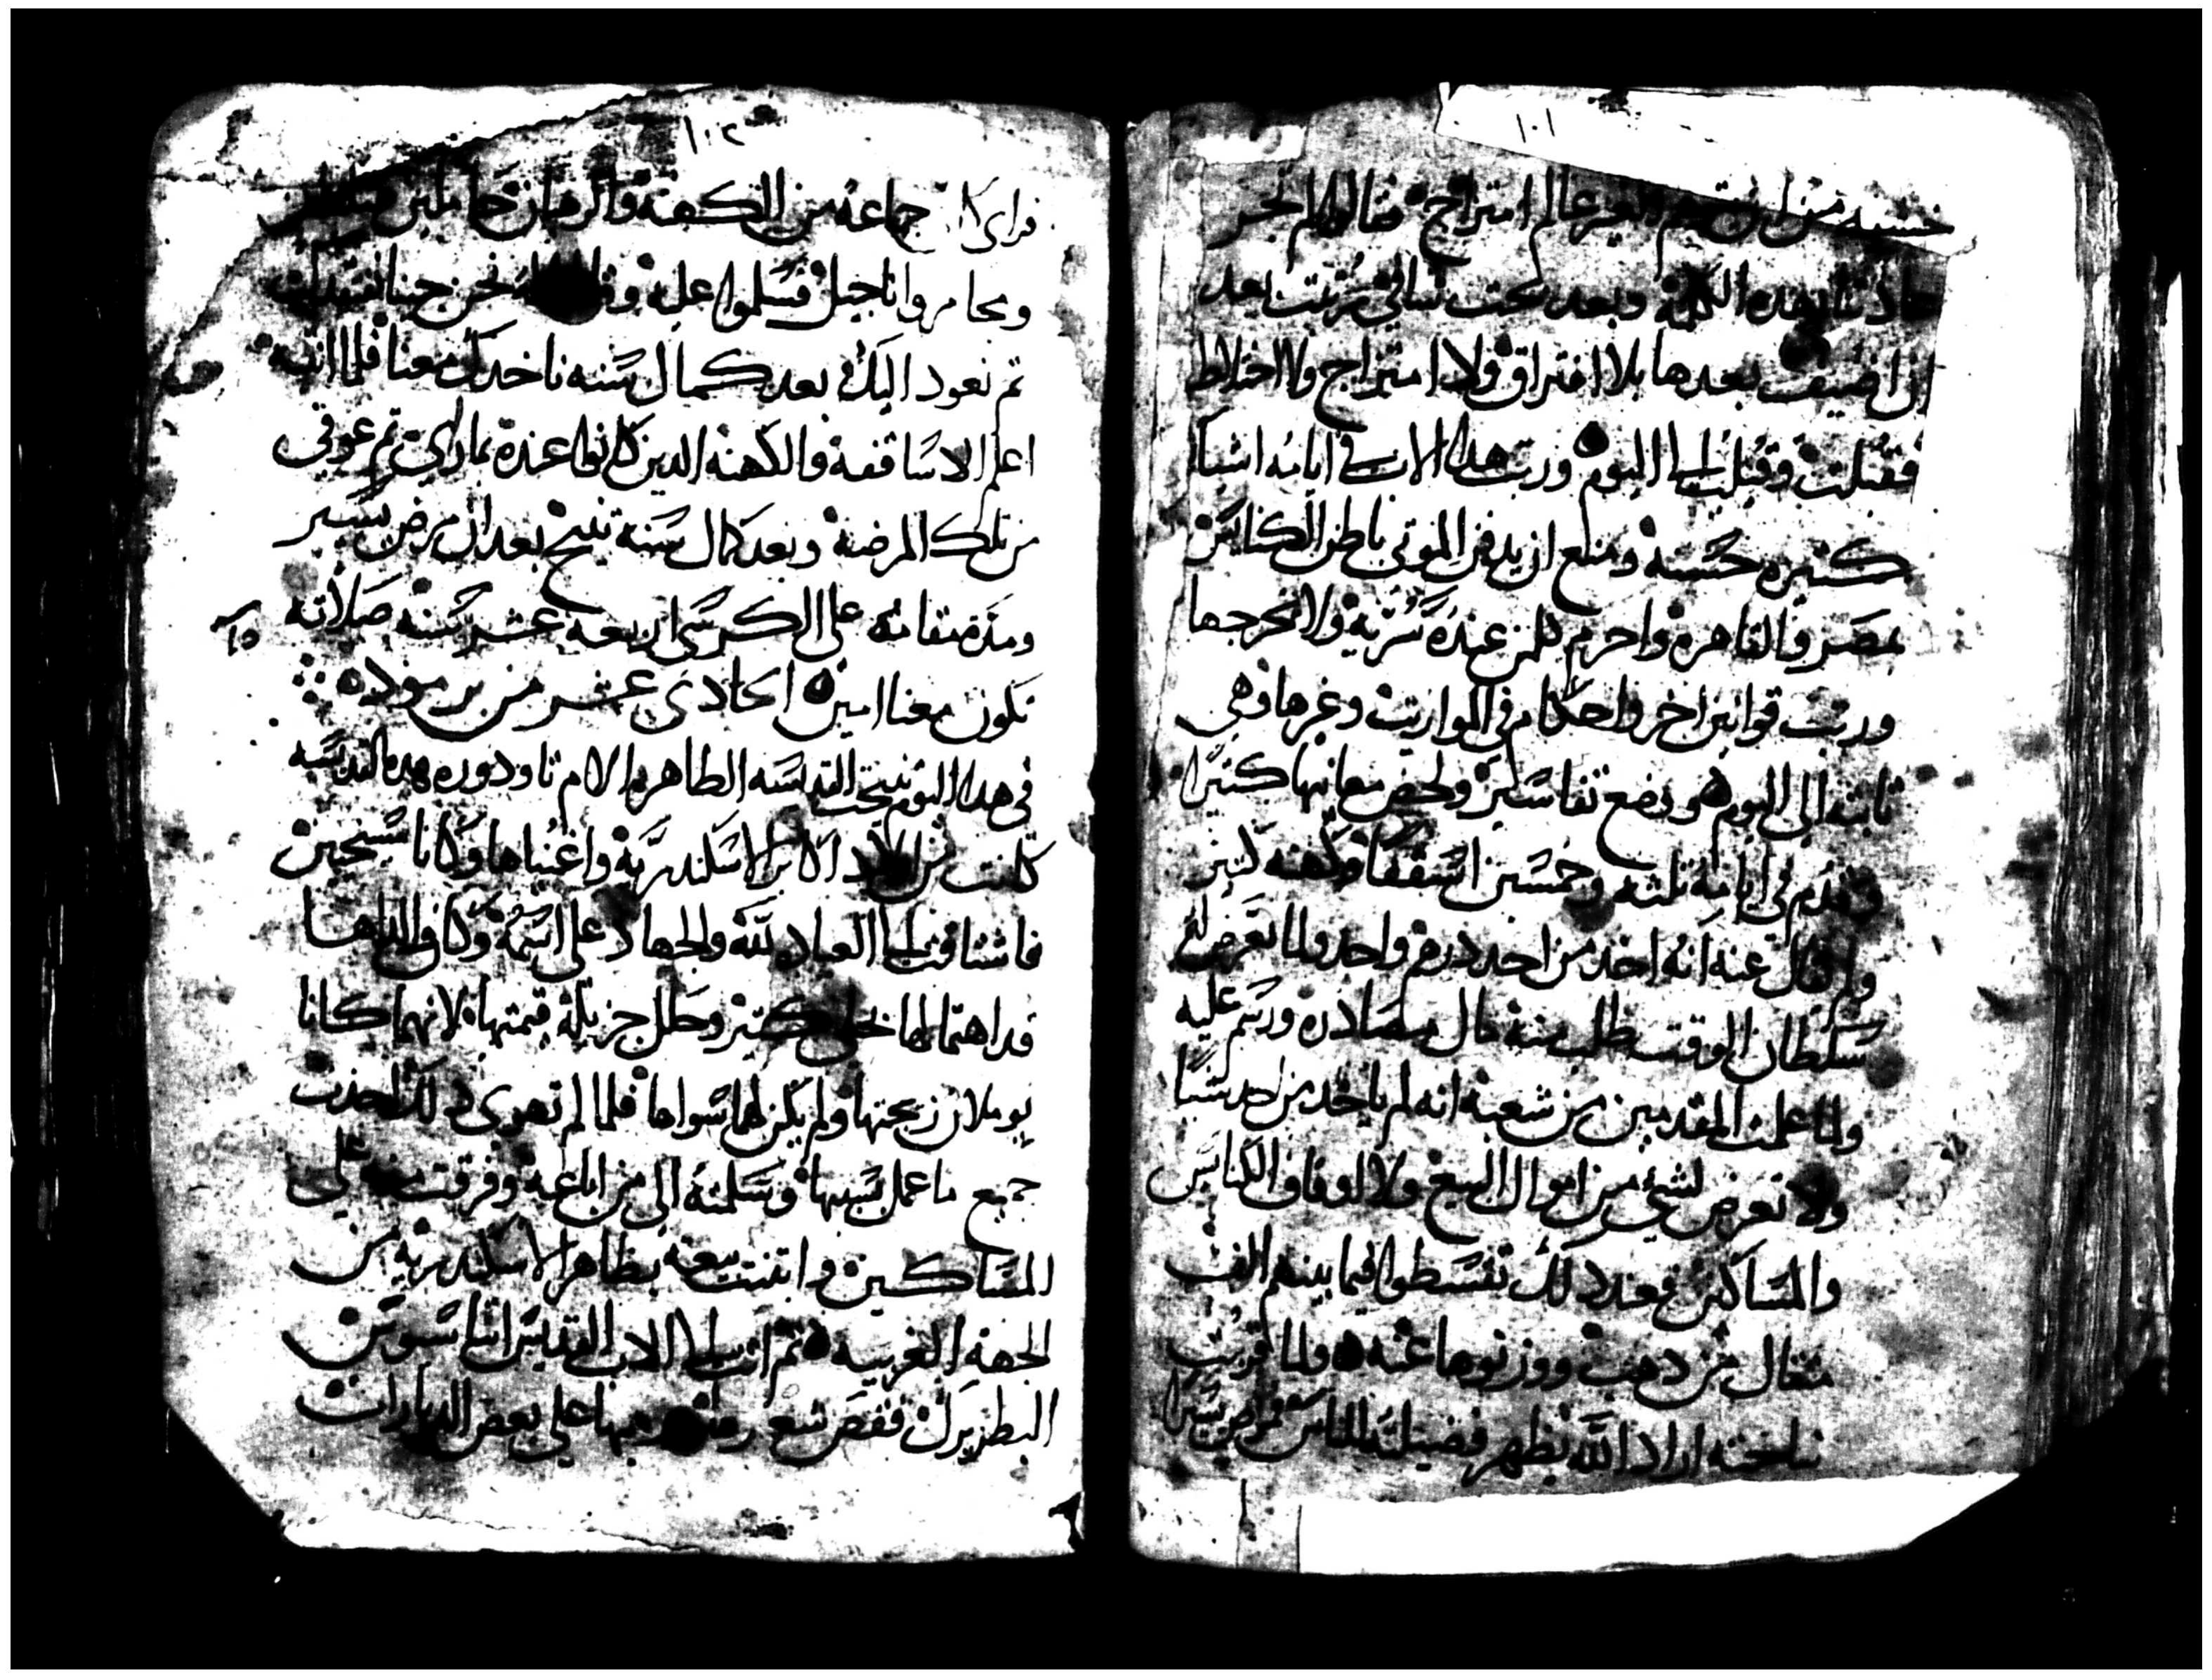 ١٠١
خشية من ان عالم امتزاج فقالوا لم تجر
عادتنا بهده الكلمة وبعد بحت تاني رتبت بعد
ان اضيف بعدها بلا افتراق ولا امتزاج ولا اختلاط
فقبلت وقيلت الى اليوم ورتب هدا الاب في ايامه اشيا
كتيره حسنة ومنع ان يدفن الموتي باطن الكنايس
بمصر والقاهرة واحرم كلمن عنده سرية ولا يخرجها
ورتب قوانين اخر واحكام في المواريت وغيرها وهي
تابته الى اليوم ووضع تفاسير ولخص معانيها كتيرا
وقدم في ايامه تلته وخمسين اسقفا وكهنه كتير
ولم يقال عنه انه اخد من احد درهم واحد ولما تعرض له
سلطان الوقت وطلب منه مال مصادره ورسم عليه
ولما علمت المقدمين من شعبه انه لم ياخد من احد شيا
ولا تعرض لشي من اموال البيع ولا اوقاف الكنايس
والمساكين فعند دلك تقسطوا فيما بينهم الف
متقال من دهب ووزنوها عنه ولما قربت
نياحته اراد الله يظهر فضيلته للناس فمرض يسيرا
١٠٢
فراى جماعه من الكهنة والرهبان حاملين
ومجامر واناجيل فسلموا عليه نحن جينا نفتقدك
تم نعود اليك بعد كمال سنه ناخدك معنا فلما انتبه
اعلم الاساقفة والكهنه الدين كانوا عنده بما راي تم عوفي
من تلك المرضة وبعد كمال سنة تنيح بعد ان مرض يسير
ومدة مقامه على الكرسي اربعه عشر سنه صلاته
تكون معنا امين الحادى عشر من برموده
في هدا اليوم تنيحت القديسه الطاهره الام تاودوره هده القديسه
كانت من اولاد اكابر الاسكندرية واغنياها وكانا مسيحيين
فاشتاقت الى العباده لله والجهاد على اسمه وكان والداها
قد اهتما لها بحلى كتير وحلل جزيلة قيمتها لانهما كانا
يوملان زيجتها ولم يكن لهما سواها فلما لم تهوى دلك اخدت
جميع ما عمل بسببها وسلمته الى من اباعه وفرقت منه على
المساكين وابتنت بيعه بظاهر الاسكندرية من
الجهة الغربيه تم اتت الى الاب القديس اتناسيوس
البطريرك فقص شعر على بعض الديارات